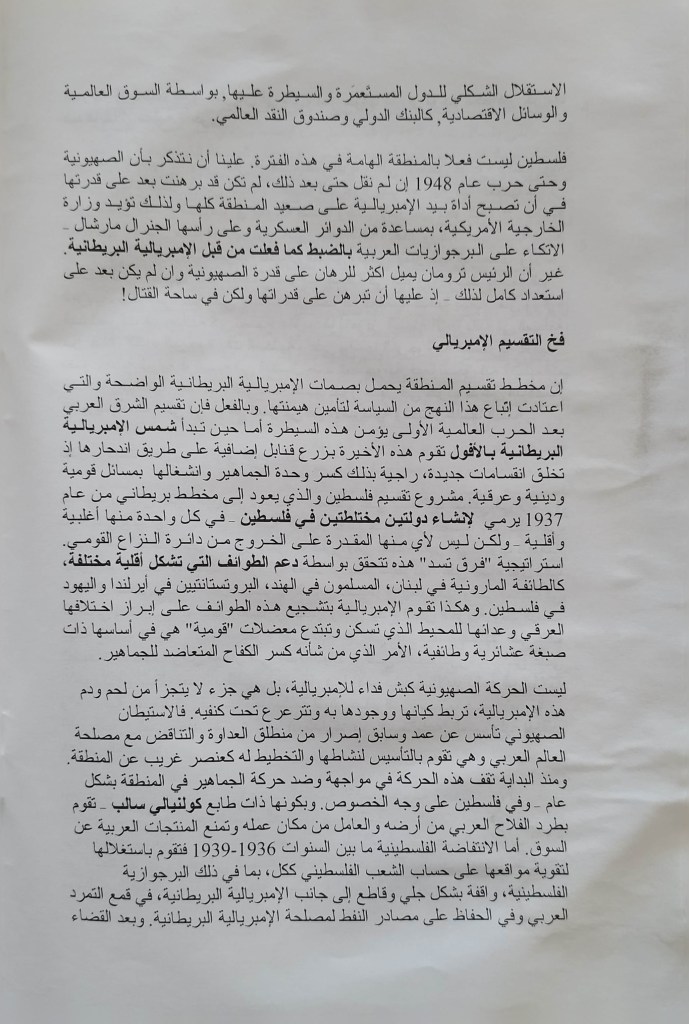 الاستقلال الشكلي للدول المستَعمَرة والسيطرة عليها, بواسطة السوق العالمية
والوسائل الاقتصادية, كالبنك الدولي وصندوق النقد العالمي.
فلسطين ليست فعلا بالمنطقة الهامة في هذه الفترة. علينا أن نتذكر بأن الصهيونية
وحتى حرب عام 1948 إن لم نقل حتى بعد ذلك، لم تكن قد برهنت بعد على قدرتها
في أن تصبح أداة بيد الإمبريالية على صعيد المنطقة كلها ولذلك تؤيد وزارة
الخارجية الأمريكية، بمساعدة من الدوائر العسكرية وعلى رأسها الجنرال مارشال –
الاتكاء على البرجوازيات العربية بالضبط كما فعلت من قبل الإمبريالية البريطانية.
غير أن الرئيس ترومان يميل اكثر للرهان على قدرة الصهيونية وان لم يكن بعد على
استعداد كامل لذلك – إذ عليها أن تبرهن على قدراتها ولكن في ساحة القتال!
فخ التقسيم الإمبريالي
إن مخطط تقسيم المنطقة يحمل بصمات الإمبريالية البريطانية الواضحة والتي
اعتادت إتباع هذا النهج من السياسة لتأمين هيمنتها. وبالفعل فإن تقسيم الشرق العربي
بعد الحرب العالمية الأولى يؤمن هذه السيطرة أما حين تبدأ شمس الإمبريالية
البريطانية بالأفول تقوم هذه الأخيرة بزرع قنابل إضافية على طريق اندحارها إذ
تخلق انقسامات جديدة، راجية بذلك كسر وحدة الجماهير وانشغالها بمسائل قومية
ودينية وعرقية. مشروع تقسيم فلسطين والذي يعود إلى مخطط بريطاني من عام
1937 يرمي لإنشاء دولتين مختلطتين في فلسطين – في كل واحدة منها أغلبية
وأقلية – ولكن ليس لأي منها المقدرة على الخروج من دائرة النزاع القومي.
استراتيجية "فرق تسد" هذه تتحقق بواسطة دعم الطوائف التي تشكل أقلية مختلفة،
كالطائفة المارونية في لبنان، المسلمون في الهند، البروتستانتيين في أيرلندا واليهود
في فلسطين. وهكذا تقوم الإمبريالية بتشجيع هذه الطوائف على إبراز اختلافها
العرقي وعدائها للمحيط الذي تسكن وتبتدع معضلات "قومية" هي في أساسها ذات
صبغة عشائرية وطائفية، الأمر الذي من شأنه كسر الكفاح المتعاضد للجماهير.
ليست الحركة الصهيونية كبش فداء للإمبريالية، بل هي جزء لا يتجزأ من لحم ودم
هذه الإمبريالية، تربط كيانها ووجودها به وتترعرع تحت كنفيه. فالاستيطان
الصهيوني تأسس عن عمد وسابق إصرار من منطلق العداوة والتناقض مع مصلحة
العالم العربي وهي تقوم بالتأسيس لنشاطها والتخطيط له كعنصر غريب عن المنطقة.
ومنذ البداية تقف هذه الحركة في مواجهة وضد حركة الجماهير في المنطقة بشكل
عام – وفي فلسطين على وجه الخصوص. وبكونها ذات طابع كولنيالي سالب – تقوم
بطرد الفلاح العربي من أرضه والعامل من مكان عمله وتمنع المنتجات العربية عن
السوق. أما الانتفاضة الفلسطينية ما بين السنوات 1936-1939 فتقوم باستغلالها
لتقوية مواقعها على حساب الشعب الفلسطيني ككل، بما في ذلك البرجوازية
الفلسطينية، واقفة بشكل جلي وقاطع إلى جانب الإمبريالية البريطانية، في قمع التمرد
العربي وفي الحفاظ على مصادر النفط لمصلحة الإمبريالية البريطانية. وبعد القضاء